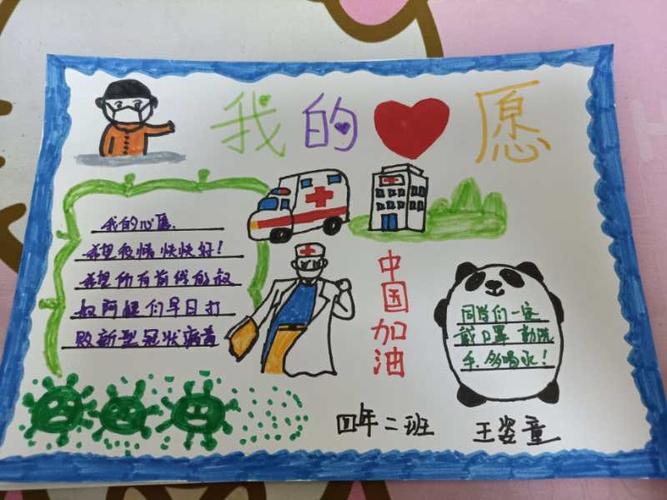 我的愿
我的心愿
希望疫情快快好！
希望所有前线的叔
叔阿姨们早日打
败新型冠状病毒
中国加油
同学们一定
戴口罩 勤洗
手.多喝水！
四年二班 王姿童